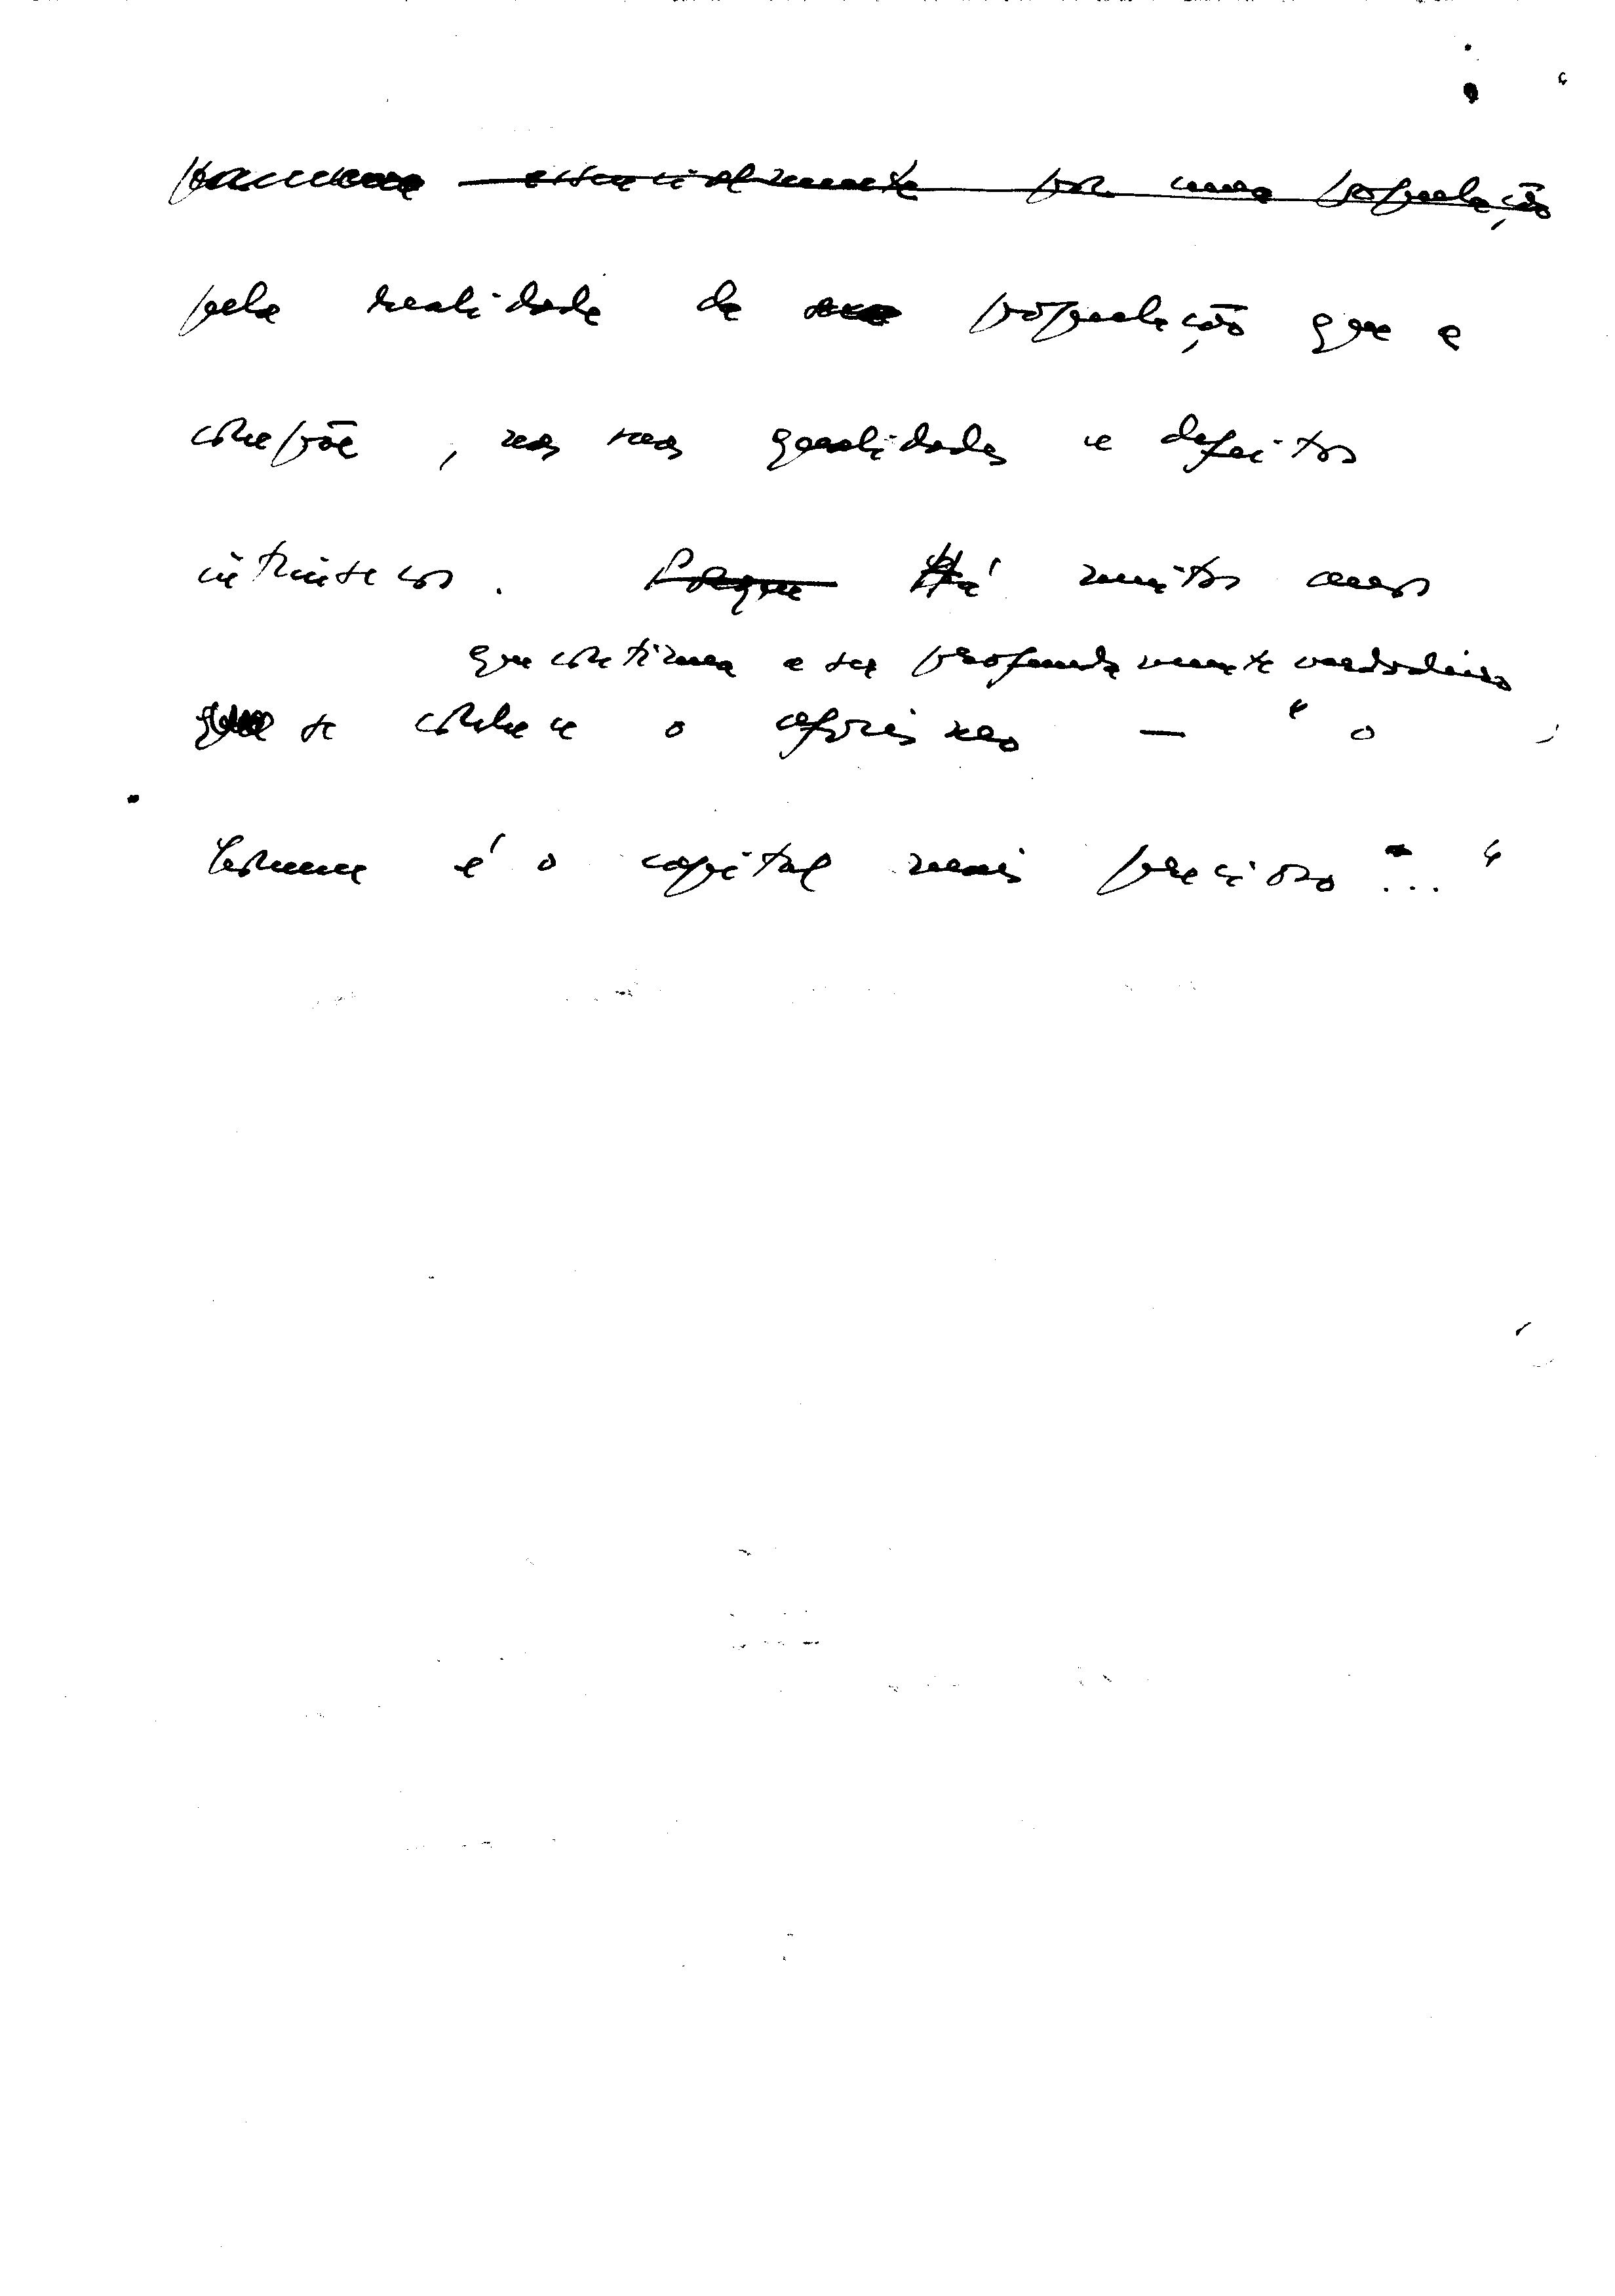 essencialmente por uma população
pela realidade da população que a
compõe, nas suas qualidades e defeitos
intrínsecos. Porque Há muitos anos
que continua a ser profundamente verdadeiro
que se conhece o aforismo — "o
homem é o capital mais precioso..."